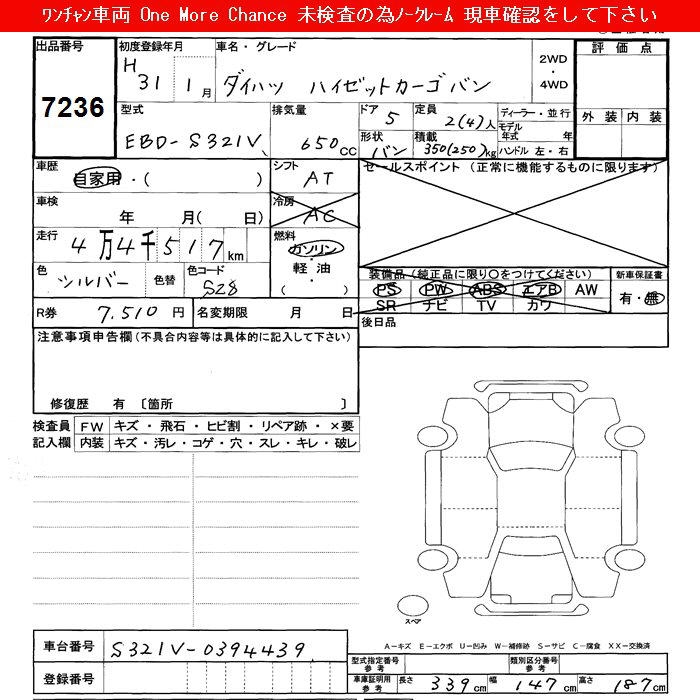 ﾜﾝﾁｬﾝ車両 One More Chance 未検査の為ﾉｰｸﾚｰﾑ 現車確認をして下さい
出品番号 初度登録年月 車名・グレード 評価点
7236 H31 1月 ダイハツ ハイゼットカーゴバン 2WD・4WD
外装 内装
型式 排気量 ドア 5 定員 2(4)人 ディーラー・並行
EBD-S321V 650cc 形状 バン 積載 350(250)kg モデル年式 年 ハンドル 左・右
車歴 自家用・( ) シフト AT セールスポイント (正常に機能するものに限ります)
車検 年 月( 日) 冷房 AC
走行 4万4千517km 燃料 ガソリン・軽油・( )
色 シルバー 色替 色コード S28
装備品 (純正品に限り〇をつけてください) 新車保証書
PS PW ABS エアB AW 有・無
SR ナビ TV カワ
R券 7.510円 名変期限 月 日 後日品
注意事項申告欄 (不具合内容等は具体的に記入して下さい)
修復歴 有 〔箇所 〕
検査員 FW キズ・飛石・ヒビ割・リペア跡・×要
記入欄 内装 キズ・汚レ・コゲ・穴・スレ・キレ・破レ
スペア
A-キズ E-エクボ U-凹み W-補修跡 S-サビ C-腐食 XX-交換済
車台番号 S321V-0394439
型式指定番号 参考 類別区分番号 参考
登録番号 車庫証明用 参考 長さ 339cm 幅 147cm 高さ 187cm